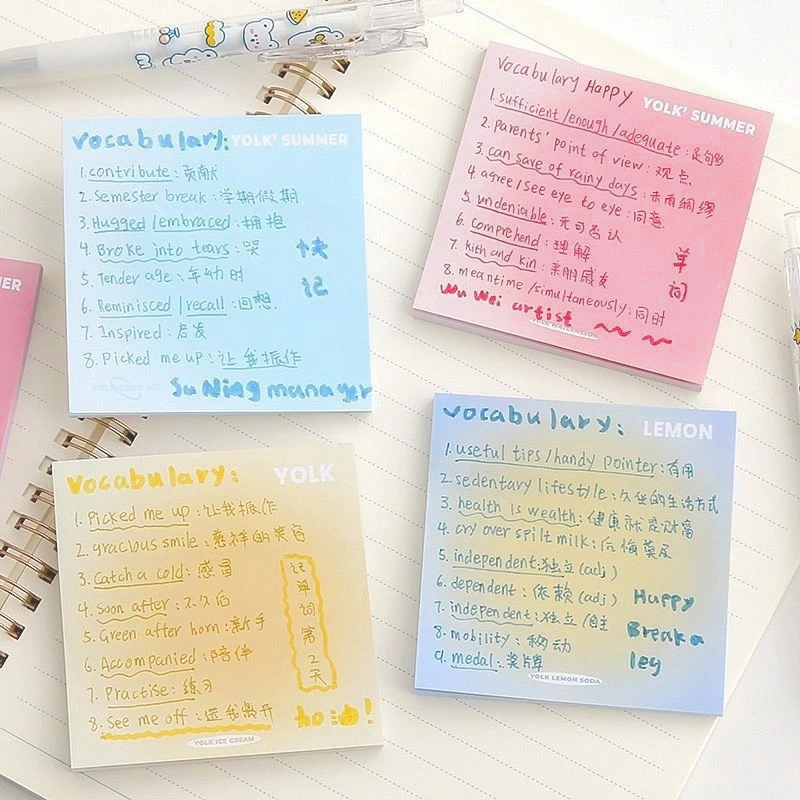 vocabulary: YOLK' SUMMER
1. contribute: 贡献
2. Semester break: 学期假期
3. Hugged/embraced: 拥抱
4. Broke into tears: 哭
5. Tender age: 年幼时
6. Reminisced/recall: 回想.
7. Inspired: 启发
8. Picked me up: 让我振作
快
记
Su Ning manayer
vocabulary Happy YOLK' SUMMER
1. sufficient/enough/adequate: 足够多
2. parents' point of view: 观点
3. can save of rainy days: 未雨绸缪
4. agree/see eye to eye: 同意.
5. undeniable: 无可否认
6. comprehend: 理解
7. kith and kin: 亲朋戚友
8. meantime/simultaneously: 同时
单
词
Wu Wei artist
YOLK WATERMELON
MER
vocabulary: YOLK
1. Picked me up: 让我振作
2. gracious smile: 慈祥的笑容
3. Catch a cold: 感冒
4. soon after: 不久后
5. Green after horn: 新手
6. Accompanied: 陪伴
7. Practise: 练习
8. See me off: 送我离开
记
单
词
第
2
天
YOLK ICE CREAM
vocabulary: LEMON
1. useful tips/handy pointer: 有用
2. sedentary lifestyle: 久坐的生活方式
3. health is wealth: 健康就是财富
4. cry over spilt milk: 后悔莫及
5. independent: 独立(adj)
6. dependent: 依赖(adj)
7. independent: 独立/自主
8. mobility: 移动
9. medal: 奖牌
Happy
Break a
leg
YOLK LEMON SODA